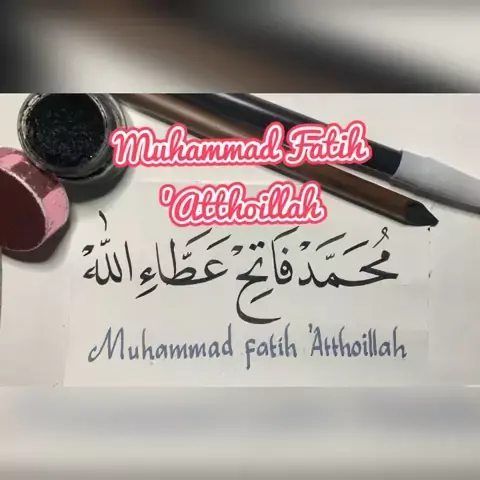 Muhammad Fatih
'Atthoillah
مُحَمَّدْ فَاتِحْ عَطَّاءِ اللّٰهْ
Muhammad fatih 'Atthoillah